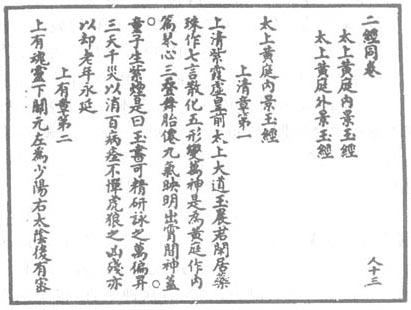 二經同卷
人十三
太上黃庭內景玉經
太上黃庭外景玉經
太上黃庭內景玉經
上清章第一
上清紫霞虛皇前太上大道玉晨君閑居蘂
珠作七言散化五形變萬神是為黃庭作內
篇琴心三疊舞胎僊九氣映明出霄間神蓋
童子生紫煙是曰玉書可精研詠之萬徧昇
三天千災以消百病痊不憚虎狼之凶殘亦
以却老年永延
上有章第二
上有魂靈下關元左為少陽右太陰後有密